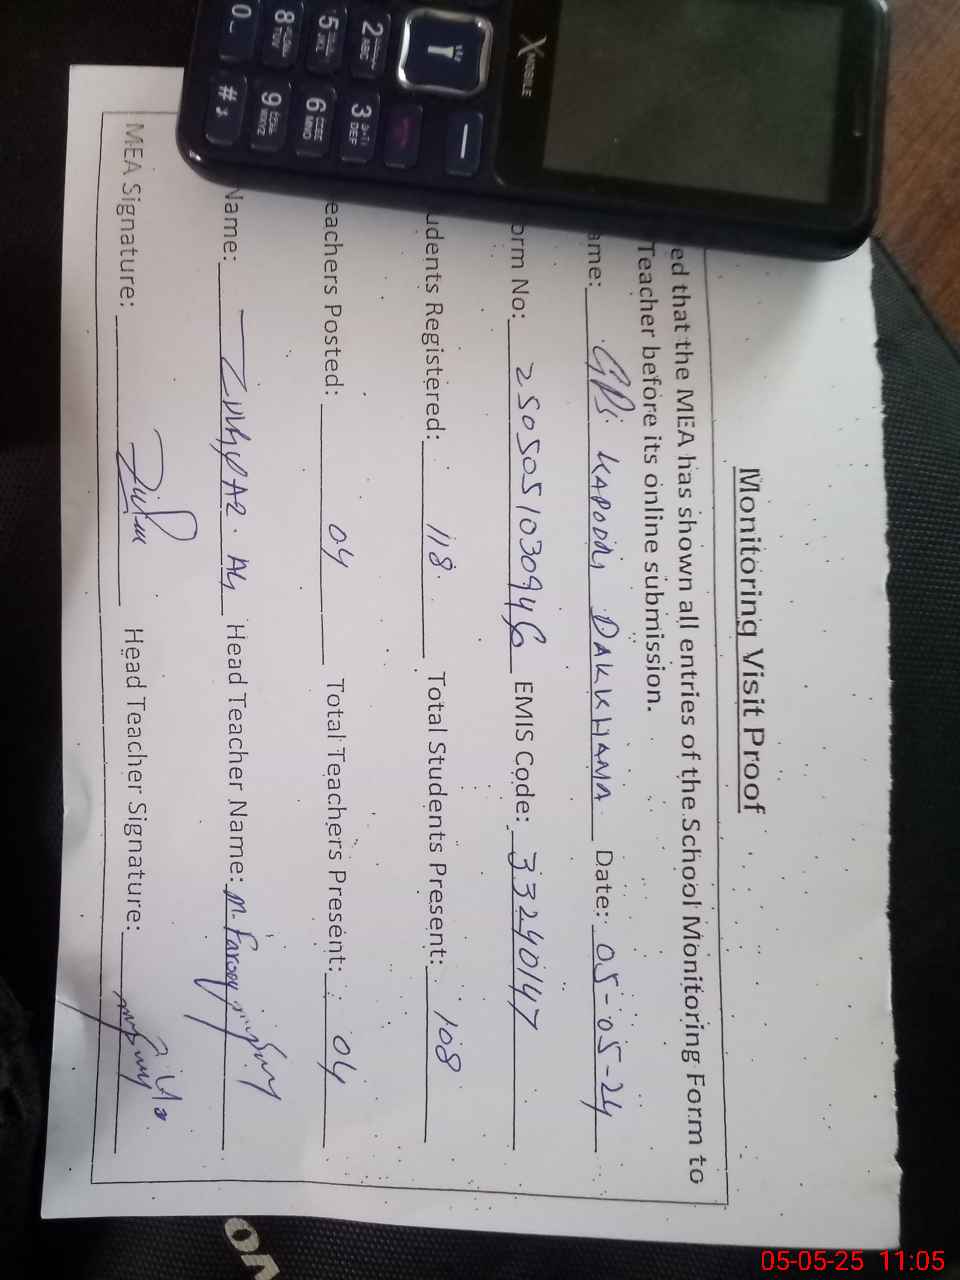 Monitoring Visit Proof
ed that the MEA has shown all entries of the School Monitoring Form to
Teacher before its online submission.
ame: GPS KAPOORI DAKKHANA Date: 05-05-24
orm No: 2505051030946 EMIS Code: 33240147
udents Registered: 118 Total Students Present: 108
eachers Posted: 04 Total Teachers Present: 04
Name: Ali Head Teacher Name: M. Farooq
MEA Signature: Head Teacher Signature:
XMOBILE
2 ABC
3 DEF
5 JKL
6 MNO
8 TUV
9 WXYZ
0
#
05-05-25 11:05